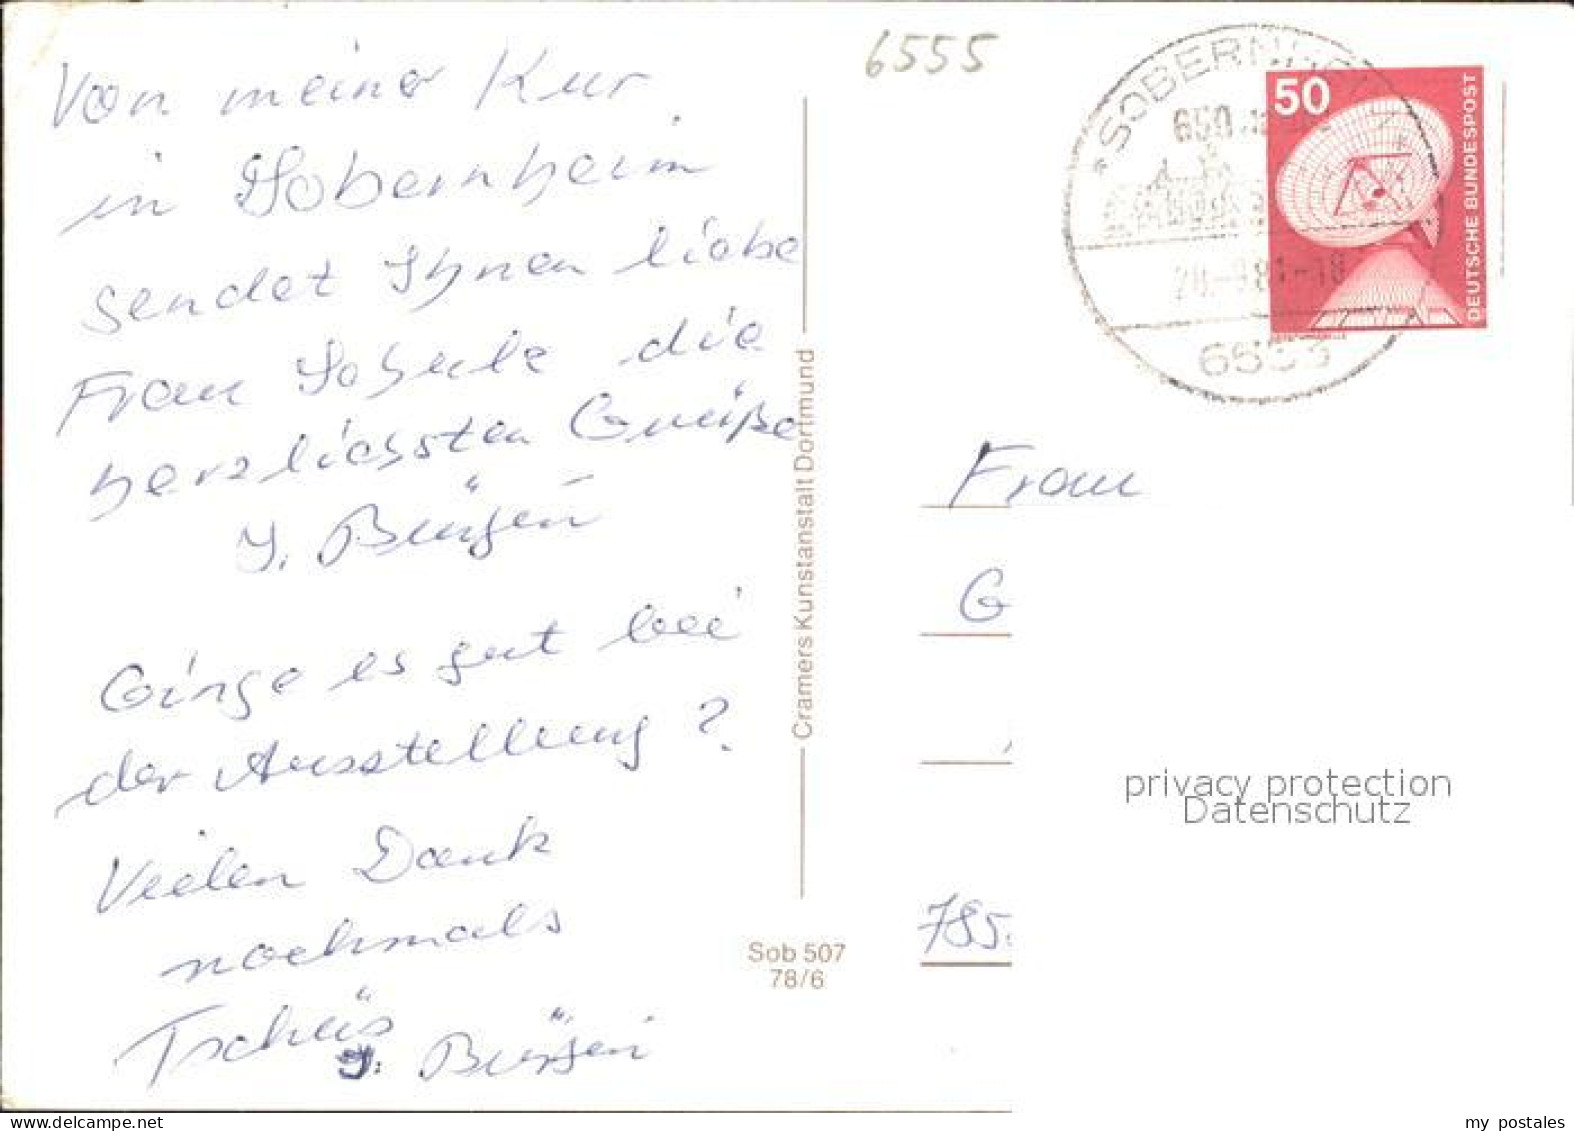 Von meiner Kur
in Sobernheim
sendet Ihnen liebe
Frau Schule die
herzliehsten Grüße
J. Bürgin
Ginge es gut bei
der Ausstellung?
Vielen Dank
nochmals
Tschüs
J. Bürgin
Cramers Kunstanstalt Dortmund
Sob 507
78/6
6555
*SOBERNHEIM
650
20.-9.81-18
6553
50
DEUTSCHE BUNDESPOST
Frau
G
785
privacy protection
Datenschutz
my postales